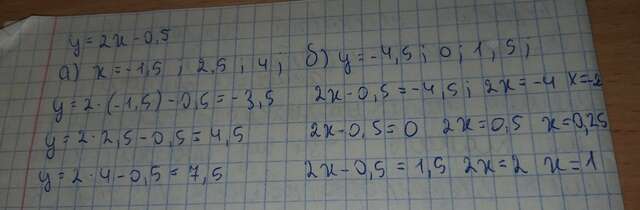 y=2x-0,5
а) x=-1,5 ; 2,5 ; 4 ; б) y=-4,5 ; 0 ; 1,5 ;
y=2·(-1,5)-0,5=-3,5 2x-0,5=-4,5 ; 2x=-4 x=-2
y=2·2,5-0,5=4,5 2x-0,5=0 2x=0,5 x=0,25
y=2·4-0,5=7,5 2x-0,5=1,5 2x=2 x=1